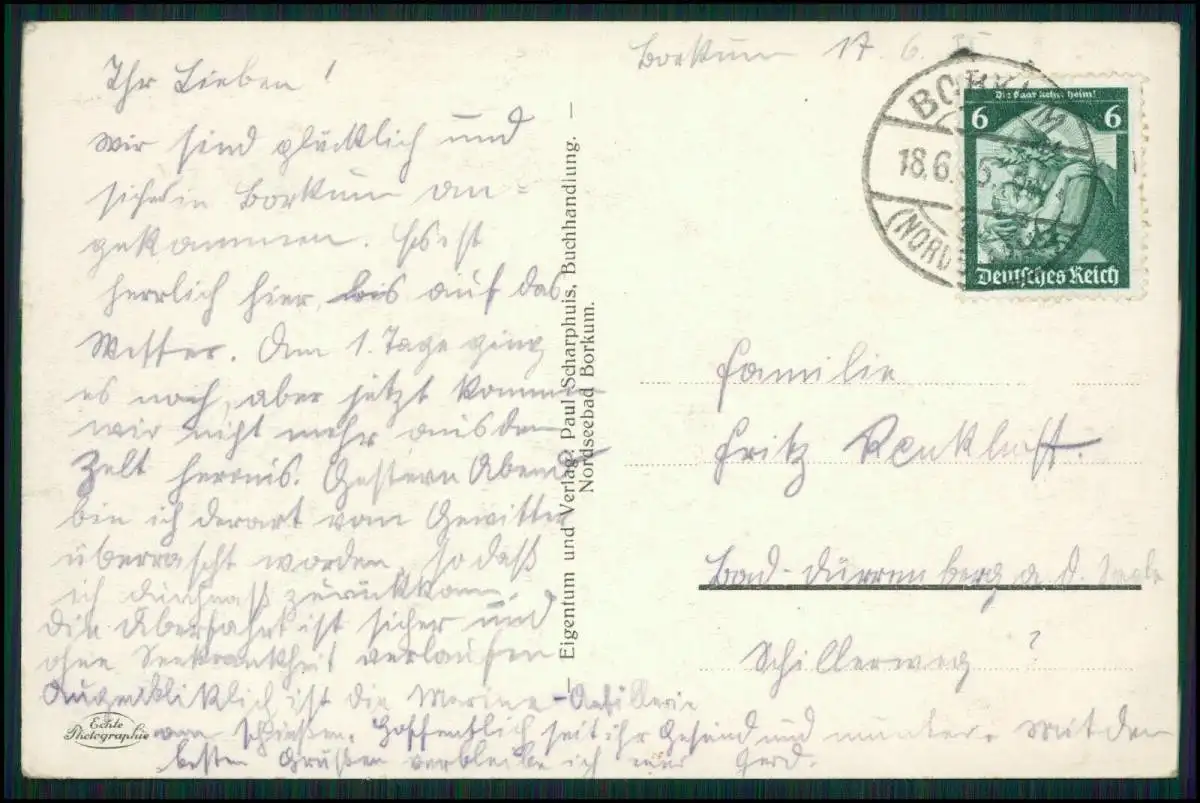 Borkum 17. 6. 35
Ihr Lieben!
Wir sind glücklich und
sicher in Borkum an-
gekommen. Es ist
herrlich hier, bis auf das
Wetter. Am 1. Tage ging
es noch, aber jetzt kommen
wir nicht mehr aus dem
Zelt heraus. Gestern Abend
bin ich derart vom Gewitter
überrascht worden, so daß
ich durchnaß zurückkam.
Die Überfahrt ist sicher und
ohne Seekrankheit verlaufen
Augenblicklich ist die Marine-Artillerie
am schießen. Hoffentlich seit ihr Gesund und munter. Mit den
besten Grüßen verbleibe ich euer Gerd.
Echte
Photographie
Eigentum und Verlag: Paul Scharphuis, Buchhandlung.
Nordseebad Borkum.
BORKUM
18.6.35
(NORD
Die Saar kehrt heim!
6 6
Deutsches Reich
Familie
Fritz
Bad-Dürrenberg a. d. Saale
Schillerweg ?